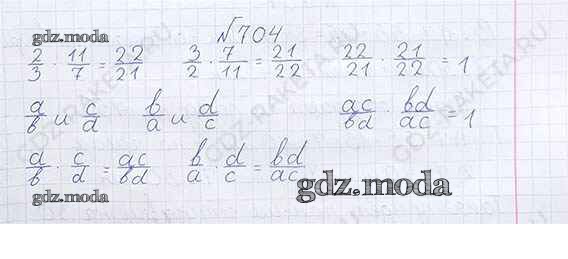 №704
gdz.moda
2/3 · 11/7 = 22/21   3/2 · 7/11 = 21/22   22/21 · 21/22 = 1
a/b и c/d   b/a и d/c   ac/bd · bd/ac = 1
a/b · c/d = ac/bd   b/a · d/c = bd/ac
gdz.moda
gdz.moda
GDZ-RAKETA.RU